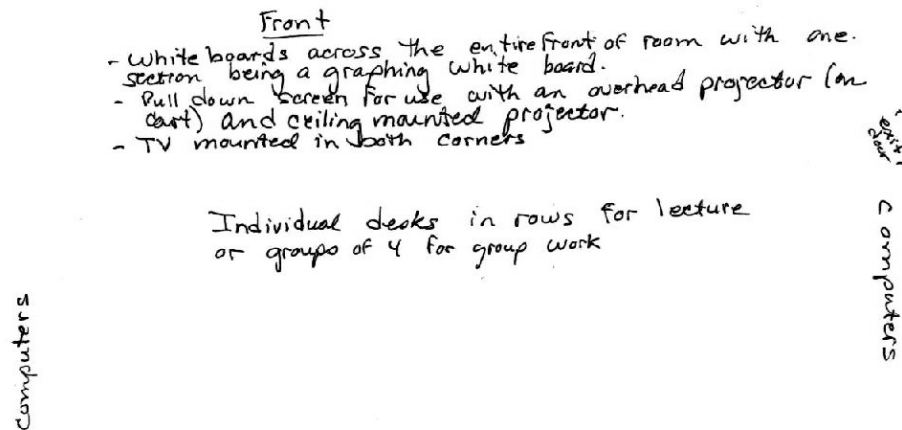 Front
- White boards across the entire front of room with one
section being a graphing white board.
- Pull down screen for use with an overhead projector (on
cart) and ceiling mounted projector.
- TV mounted in both corners
exit
door
Individual desks in rows for lecture
or groups of 4 for group work
Computers
Computers